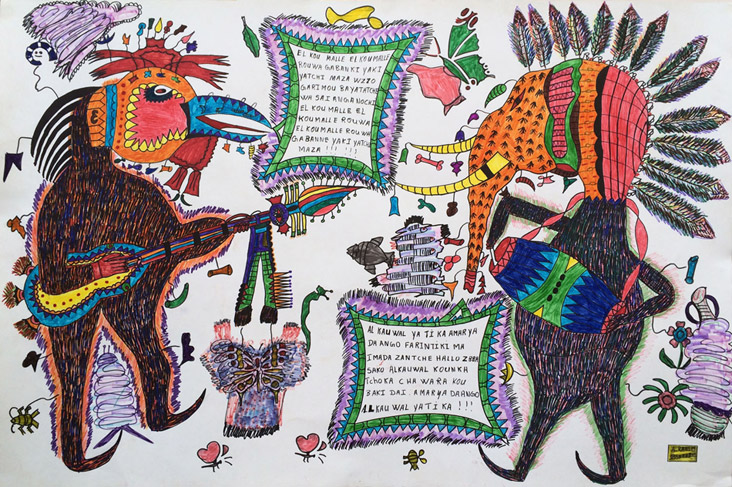 EL KOU MALLE EL KOUMALLE
ROUWA GABANKI YAKI
YATCHI MAZA WZIO
GARIMOU BAYATATCHE
WA SAI ANGA NOCHI
EL KOU MALLE EL
KOUMALLE ROUWA
EL KOUMALLE ROUWA
GABANNE YAKI YATCHE
MAZA !!! !!!
AL KAUWAL YA TI KA AMAR YA
DAANGO FARINTIKI MA
IMADA ZANTCHE HALLOU
SAKO ALKAUWAL KOUNKA
TCHOKA CHA WARA KOU
BAKI DAI. AMARYA DAANGO
ALKAUWAL YATIKA !!!